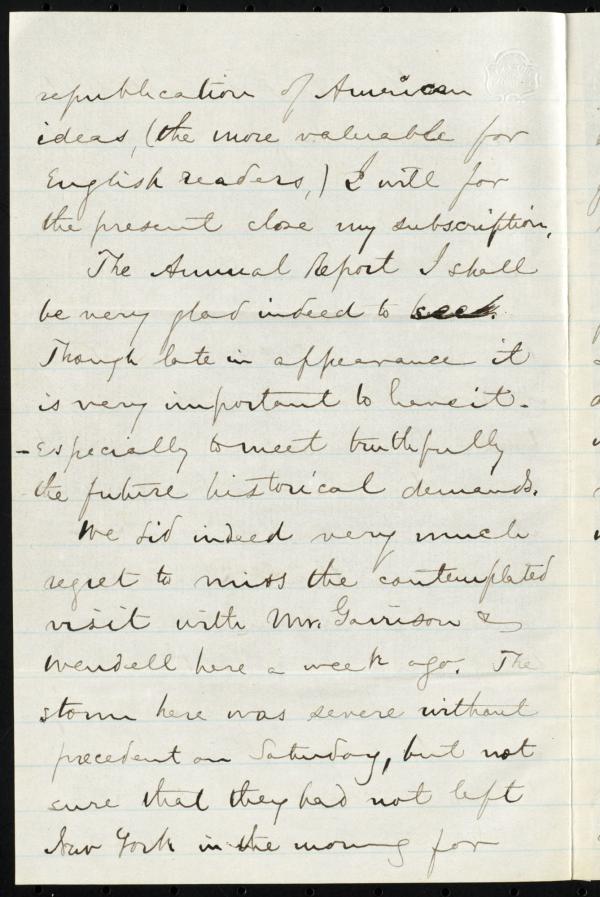 republication of American
ideas, (the more valuable for
English readers,) I will for
the present close my subscription.
The Annual Report I shall
be very glad indeed to seek.
Though late in appearance it
is very important to have it -
- especially to meet truthfully
the future historical demands.
We did indeed very much
regret to miss the contemplated
visit with Mr. Garrison &
Wendell here a week ago. The
storm here was severe without
precedent on Saturday, but not
sure that they had not left
New York in the morning for